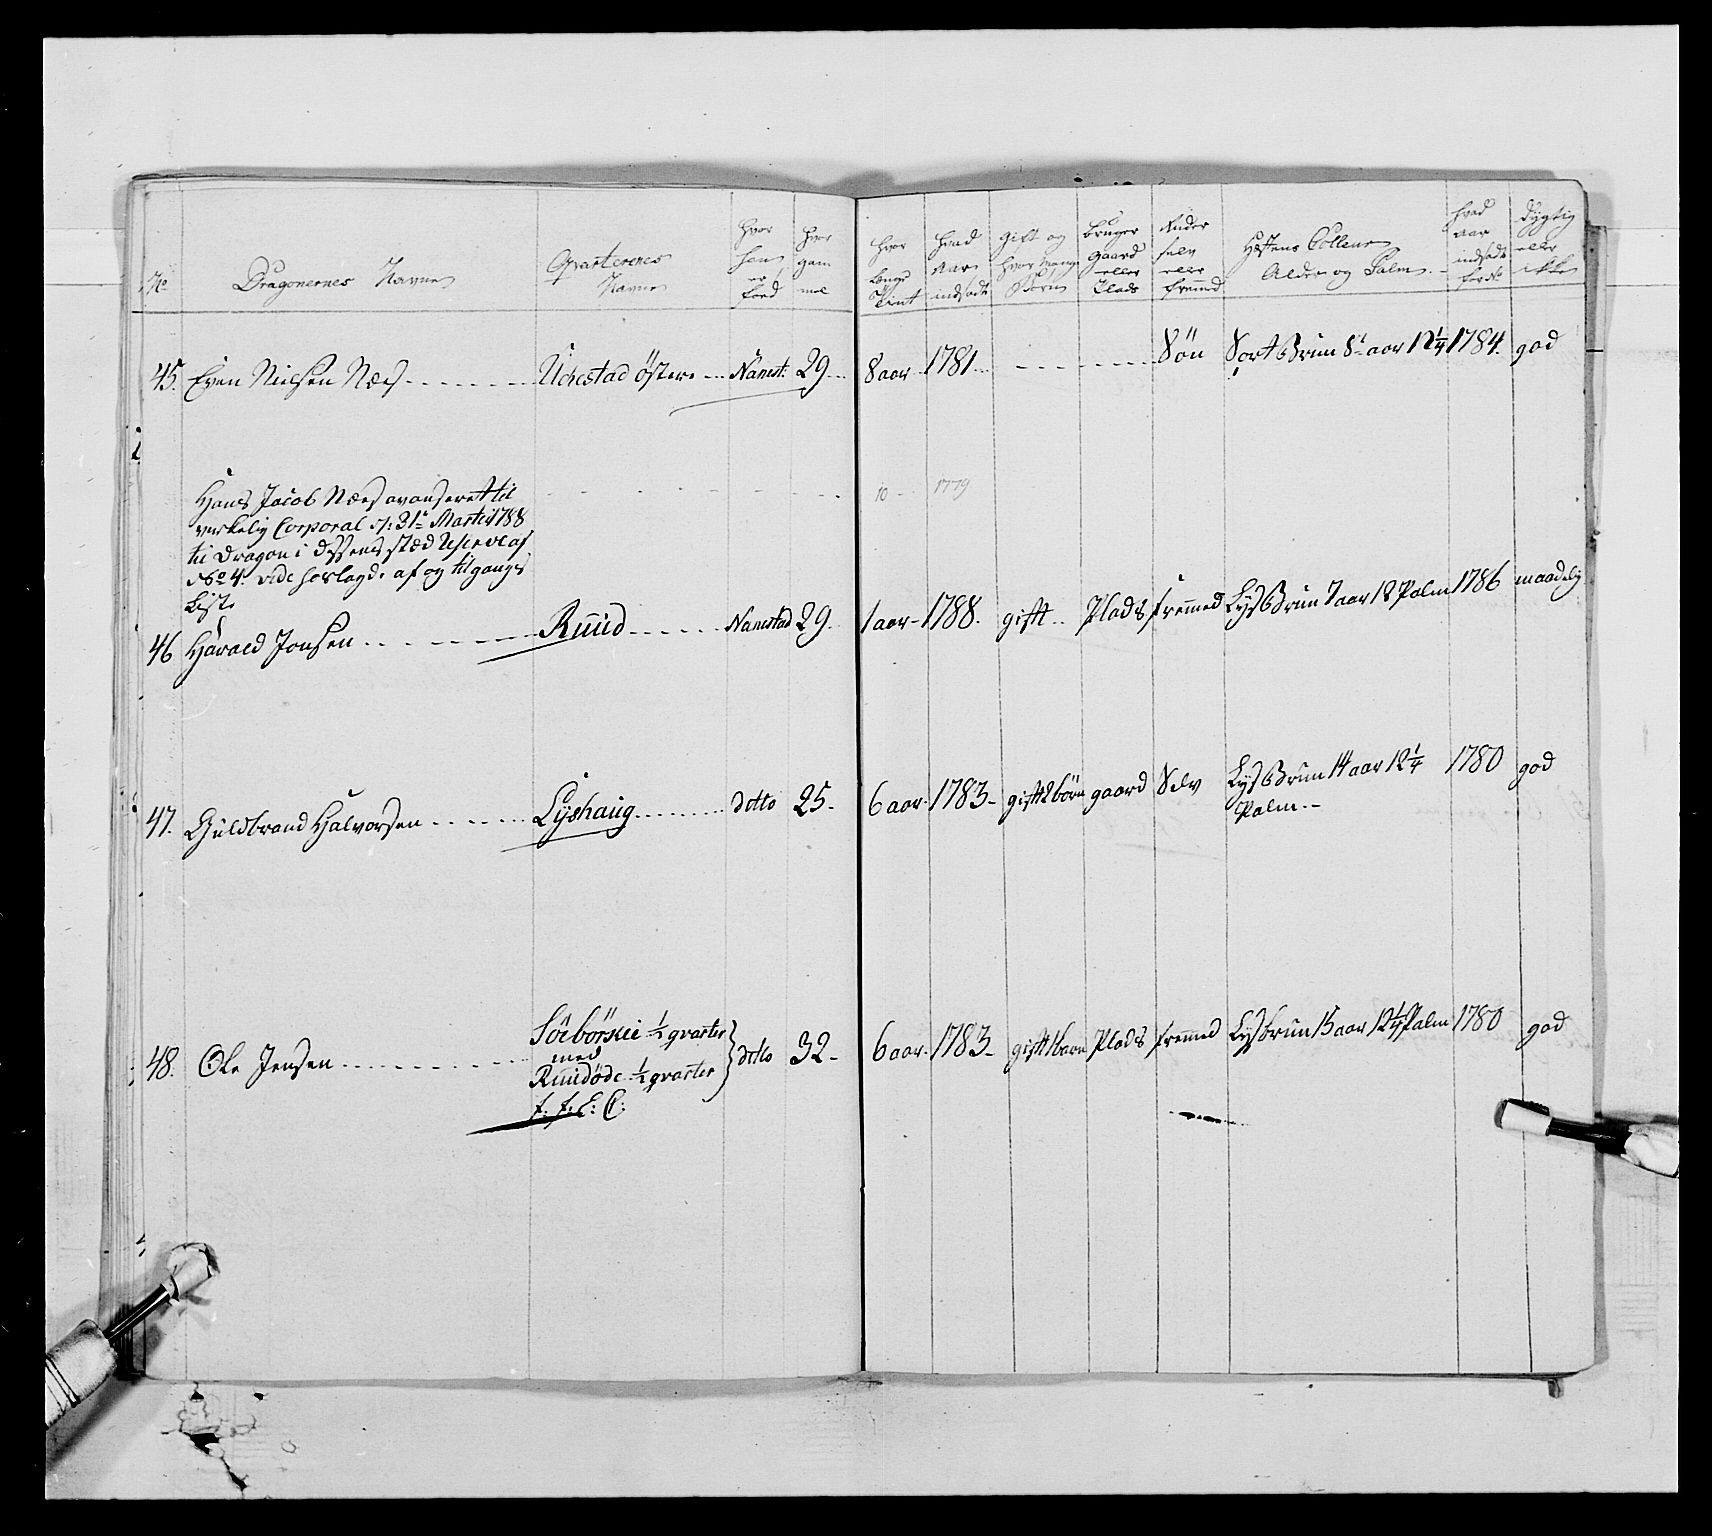 No Dragonernes Navne Qvarterenes Navne hvor han er föed hvor gammel hvor længe Tient hvad Aar indsadt gift og hvor mange Börn bruger gaard eller Plads Rÿder selv eller fremmed Hæstens Colleur Alder og Palm hvad aar indsadt dygtig eller ikke
45. Even Nielsen Næs Östere Nanest: 29 8 aar 1781 Sön Sort Brun 8 aar 12 1/4 1784 god
Hans Jacob Næss avanseret til 10 1779
virkelig Corporal d: 31te Martii 1788
til Dragon i dessens stæd
No 4. vide afog tilgangs
Liste
46 Harald Jonsen Ruud Nanestad 29. 1 aar 1788. gift Plads fremmed Lys Brun 7 aar 12 Palm 1786 maadelig
47. Guldbrand Halvorsen Lyshaug ditto 25 6 aar 1783 gift 2 börn gaard Selv Lys Brun 14 aar 12 1/4 Palm 1780 god
48. Ole Jensen 1/2 qvarter med Ruudöde 1/2 qvarter ditto 32 6 aar 1783 gift 1 barn Plads fremmed Lysbrun 15 aar 12 1/4 Palm 1780 god